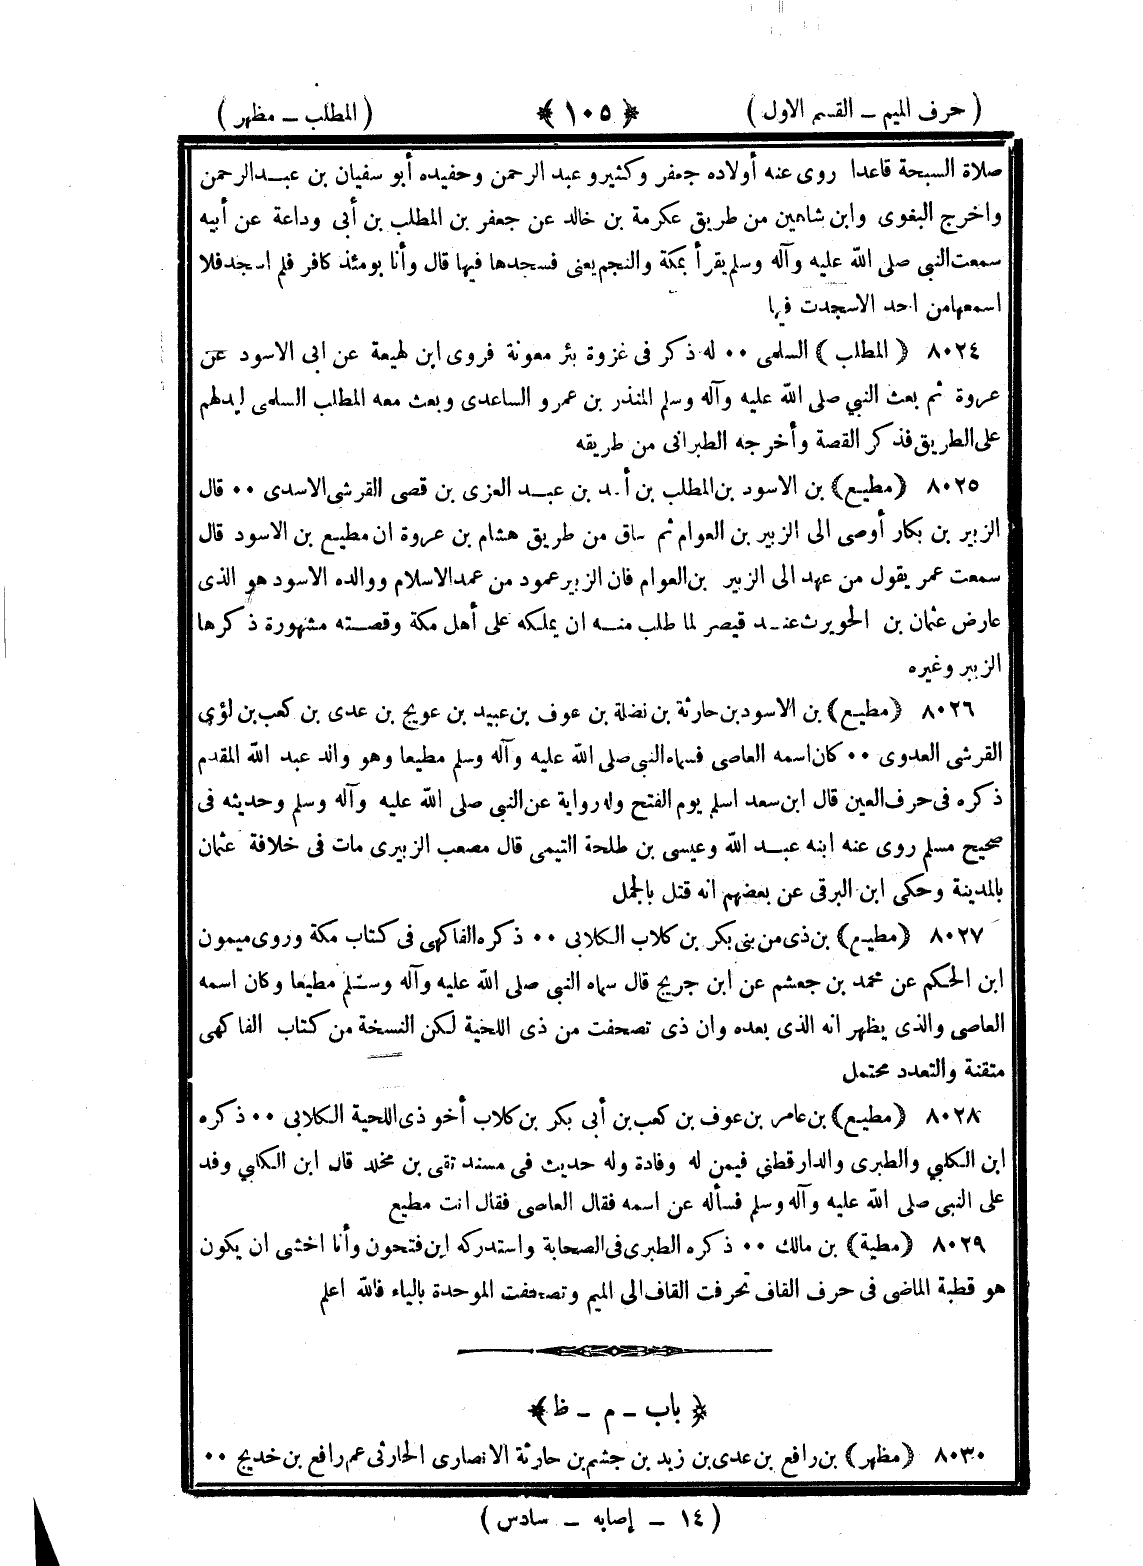 ( حرف الميم – القسم الاول ) ﴿ ١٠٥ ﴾ ( المطلب – مظهر )
صلاة السبحة قاعدا روى عنه أولاده جعفر وكثير و عبد الرحمن وحفيده أبو سفيان بن عبد الرحمن
واخرج البغوى وابن شاهين من طريق عكرمة بن خالد عن جعفر بن المطلب بن أبى وداعة عن أبيه
سمعت النبى صلى الله عليه وآله وسلم يقرأ بمكة والنجم يعنى فسجدها فيها قال وأنا يومئذ كافر فلم اسجد فلا
اسمعها من احد الا سجدت فيها
٨٠٢٤ ﴿ المطلب ﴾ السلمى ٠٠ له ذكر فى غزوة بئر معونة فروى ابن لهيعة عن ابى الاسود عن
عروة ثم بعث النبي صلى الله عليه وآله وسلم المنذر بن عمرو الساعدى وبعث معه المطلب السلمى ليدلهم
على الطريق فذكر القصة وأخرجه الطبرانى من طريقه
٨٠٢٥ ﴿ مطيع ﴾ بن الاسود بن المطلب بن أسد بن عبد العزى بن قصى القرشى الاسدى ٠٠ قال
الزبير بن بكار أوصى الى الزبير بن العوام ثم ساق من طريق هشام بن عروة ان مطيع بن الاسود قال
سمعت عمر يقول من عهد الى الزبير بن العوام فان الزبير عمود من عمد الاسلام ووالده الاسود هو الذى
عارض عثمان بن الحويرث عند قيصر لما طلب منه ان يملكه على أهل مكة وقصته مشهورة ذكرها
الزبير وغيره
٨٠٢٦ ﴿ مطيع ﴾ بن الاسود بن حارثة بن نضلة بن عوف بن عبيد بن عويج بن عدى بن كعب بن لؤي
القرشى العدوى ٠٠ كان اسمه العاصى فسماه النبى صلى الله عليه وآله وسلم مطيعا وهو والد عبد الله المقدم
ذكره فى حرف العين قال ابن سعد اسلم يوم الفتح وله رواية عن النبى صلى الله عليه وآله وسلم وحديثه فى
صحيح مسلم روى عنه ابنه عبد الله وعيسى بن طلحة التيمى قال مصعب الزبيرى مات فى خلافة عثمان
بالمدينة وحكى ابن البرقى عن بعضهم انه قتل بالجمل
٨٠٢٧ ﴿ مطيع ﴾ بن ذى من بنى بكر بن كلاب الكلابي ٠٠ ذكره الفاكهى فى كتاب مكة وروى ميمون
ابن الحكم عن محمد بن جعشم عن ابن جريج قال سماه النبي صلى الله عليه وآله وسلم مطيعا وكان اسمه
العاصى والذى يظهر انه الذى بعده وان ذى تصحفت من ذى اللحية لكن النسخة من كتاب الفاكهى
متقنة والتعدد محتمل
٨٠٢٨ ﴿ مطيع ﴾ بن عامر بن عوف بن كعب بن أبى بكر بن كلاب أخو ذى اللحية الكلابي ٠٠ ذكره
ابن الكلبي والطبرى والدارقطني فيمن له وفادة وله حديث فى مسند تقى بن مخلد قال ابن الكلبي وفد
على النبى صلى الله عليه وآله وسلم فسأله عن اسمه فقال العاصى فقال انت مطيع
٨٠٢٩ ﴿ مطية ﴾ بن مالك ٠٠ ذكره الطبرى فى الصحابة واستدركه ابن فتحون وأنا اخشى ان يكون
هو قطبة الماضى فى حرف القاف تحرفت القاف الى الميم وتصحفت الموحدة بالياء فالله اعلم
﴿ باب – م – ظ ﴾
٨٠٣٠ ﴿ مظهر ﴾ بن رافع بن عدى بن زيد بن جشم بن حارثة الانصارى الحارثى عم رافع بن خديج ٠٠
( ١٤ – إصابه – سادس )